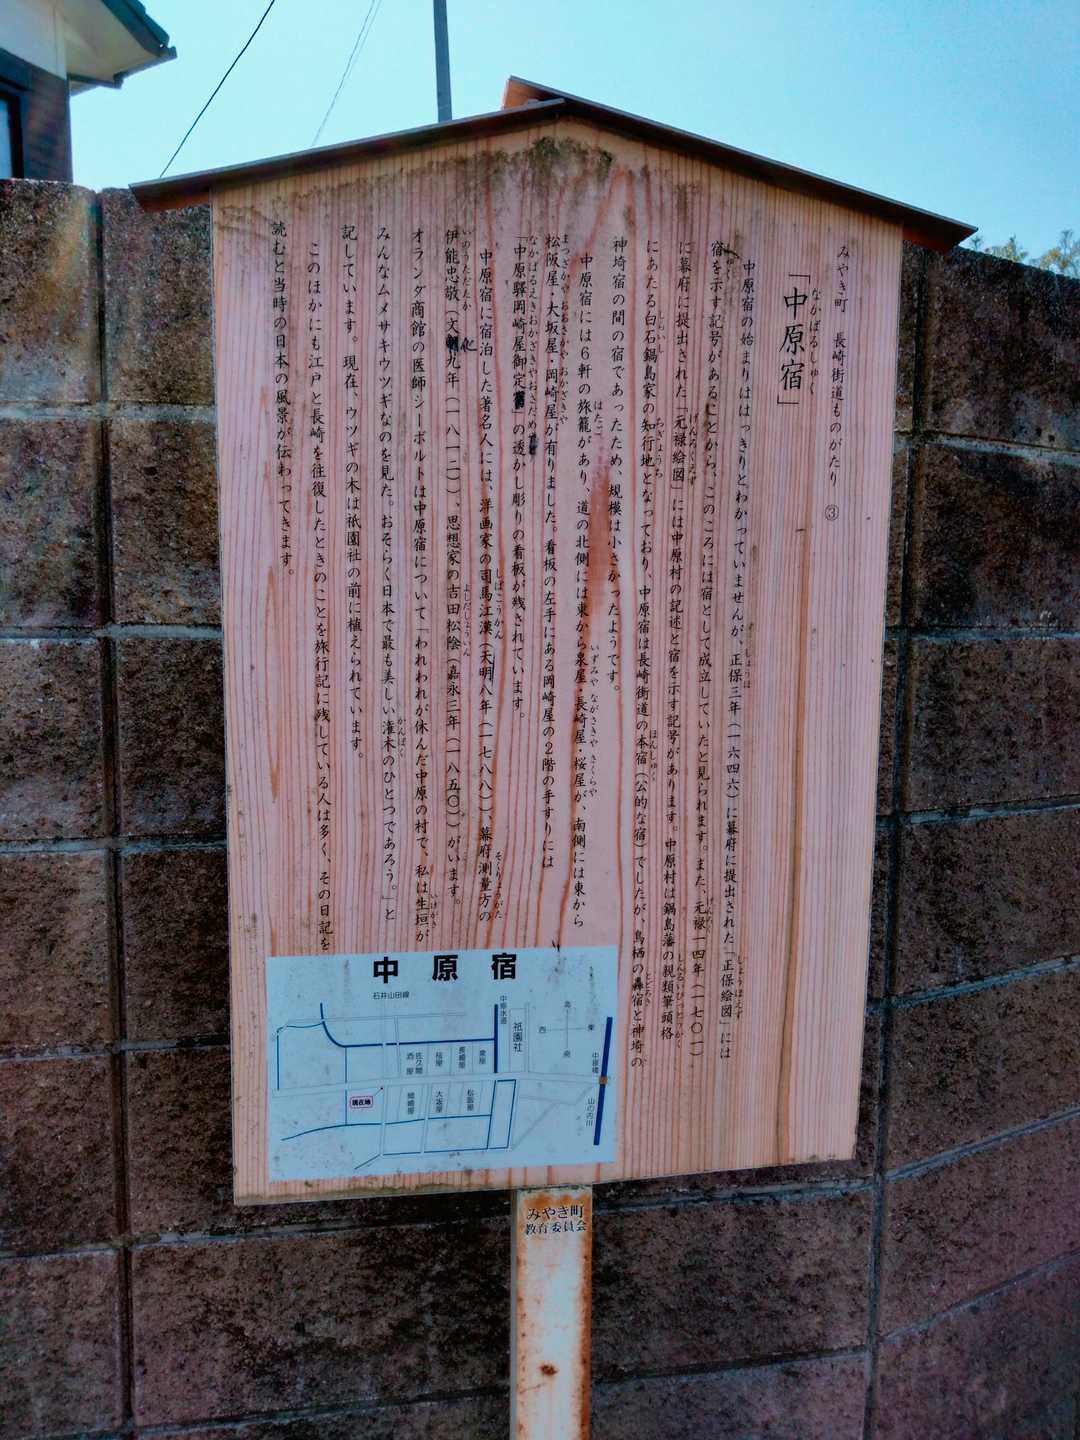 みやき町　長崎街道ものがたり　③
「中原宿」
なかばるしゅく
中原宿の始まりははっきりとわかっていませんが、正保三年（一六四六）に幕府に提出された「正保絵図」には
宿を示す記号があることから、このころには宿として成立していたと見られます。また、元禄一四年（一七〇一）
に幕府に提出された「元禄絵図」には中原村の記述と宿を示す記号があります。中原村は鍋島藩の親類筆頭格
にあたる白石鍋島家の知行地となっており、中原宿は長崎街道の本宿（公的な宿）でしたが、鳥栖の轟宿と神埼の
神埼宿の間の宿であったため、規模は小さかったようです。
中原宿には６軒の旅籠があり、道の北側には東から泉屋・長崎屋・桜屋が、南側には東から
松阪屋・大坂屋・岡崎屋が有りました。看板の左手にある岡崎屋の２階の手すりには
「中原驛岡崎屋御定」の透かし彫りの看板が残されています。
中原宿に宿泊した著名人には、洋画家の司馬江漢（天明八年（一七八八））、幕府測量方の
伊能忠敬（文化九年（一八一二））、思想家の吉田松陰（嘉永三年（一八五〇））がいます。
オランダ商館の医師シーボルトは中原宿について「われわれが休んだ中原の村で、私は生垣が
みんなムメサキウツギなのを見た。おそらく日本で最も美しい潅木のひとつであろう。」と
記しています。現在、ウツギの木は祇園社の前に植えられています。
このほかにも江戸と長崎を往復したときのことを旅行記に残している人は多く、その日記を
読むと当時の日本の風景が伝わってきます。
中原宿
石井山田線
中原水道
祇園社
北
西
東
南
中原橋
山の内川
佐久間酒屋
桜屋
長崎屋
泉屋
現在地
岡崎屋
大坂屋
松阪屋
みやき町
教育委員会